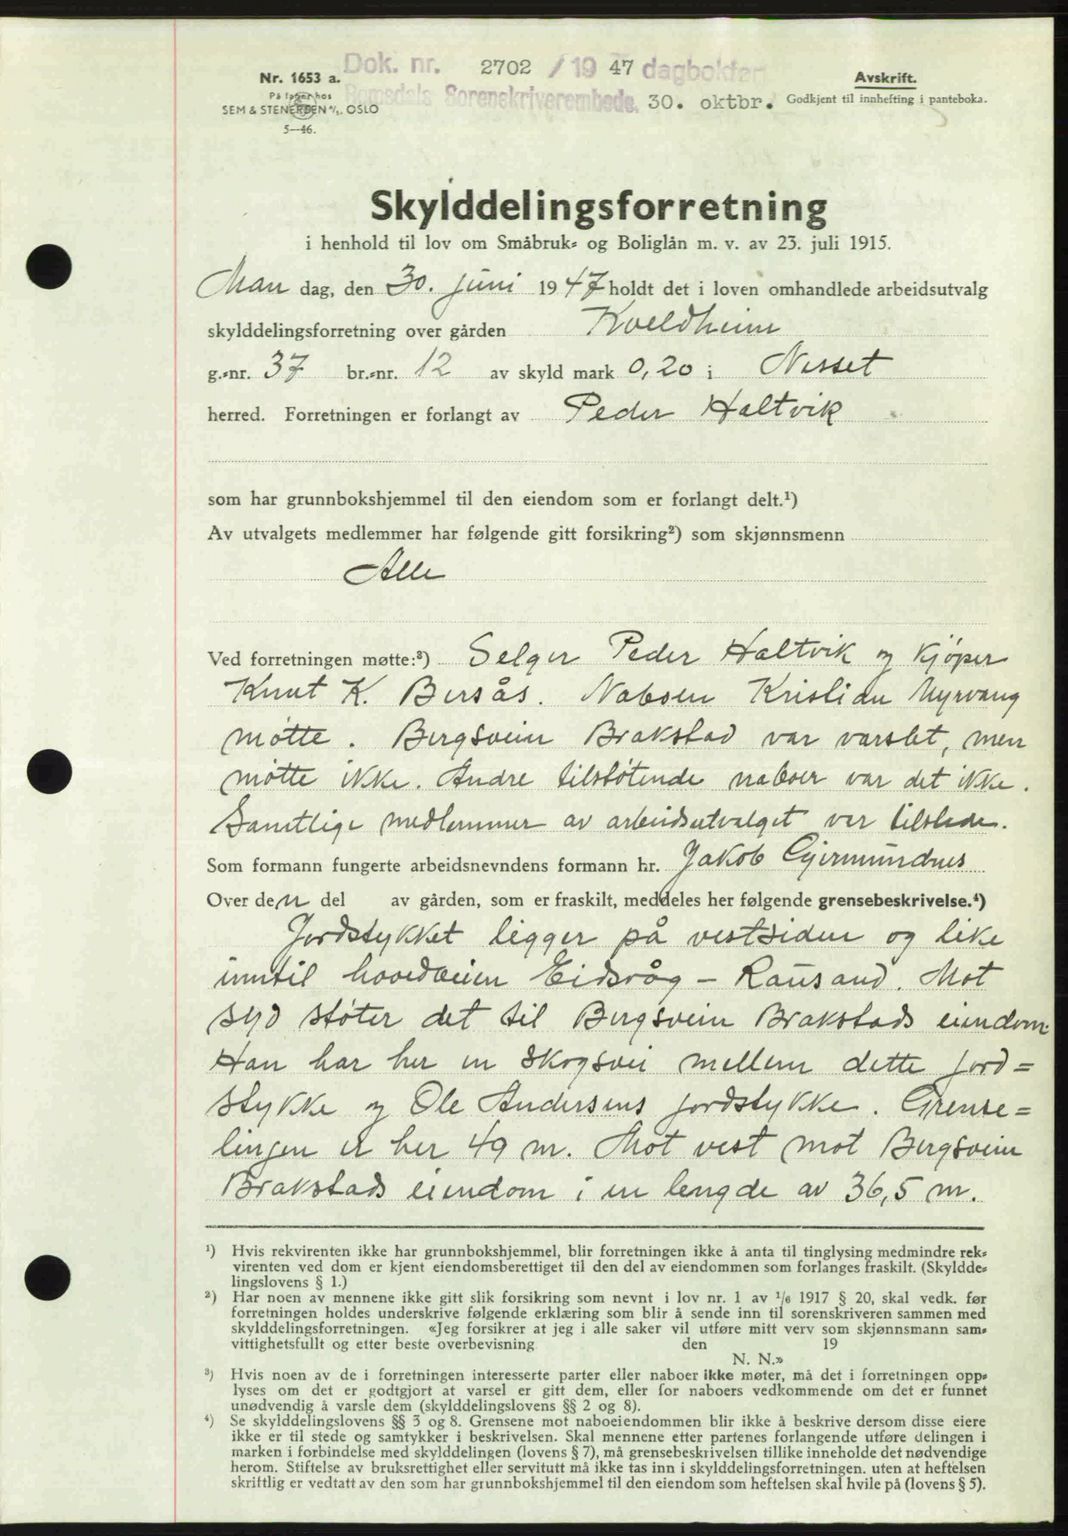 Nr. 1653 a.
På lager hos
SEM & STENERSEN A/S. OSLO
5—46.
Dok. nr. 2702 / 19 47 dagbokført
Romsdals Sorenskriverembede. 30. oktbr.
Avskrift.
Godkjent til innhefting i panteboka.
Skylddelingsforretning
i henhold til lov om Småbruk- og Boliglån m. v. av 23. juli 1915.
Man dag, den 30. juni 1947 holdt det i loven omhandlede arbeidsutvalg
skylddelingsforretning over gården Kveldheim
g.-nr. 37 br.-nr. 12 av skyld mark 0,20 i Nesset
herred. Forretningen er forlangt av Peder Haltvik
som har grunnbokshjemmel til den eiendom som er forlangt delt.¹)
Av utvalgets medlemmer har følgende gitt forsikring²) som skjønnsmenn
Alle
Ved forretningen møtte:³) Selger Peder Haltvik og kjöper
Knut K. Bersås. Naboen Kristian Myrvang
møtte. Bergsvein Brakstad var varslet, men
møtte ikke. Andre tilstøtende naboer var det ikke.
Samtlige medlemmer av arbeidsutvalget var tilstede.
Som formann fungerte arbeidsnevndens formann hr. Jakob Gjermundnes
Over den del av gården, som er fraskilt, meddeles her følgende grensebeskrivelse.⁴)
Jordstykket ligger på vestsiden og like
inntil hovedveien Eidsvåg - Rausand. Mot
syd støter det til Bergsvein Brakstads eiendom.
Han har her en skogsvei mellem dette jord=
stykke og Ole Andersens jordstykke. Grense=
lingen er her 49 m. Mot vest mot Bergsvein
Brakstads eiendom i en lengde av 36,5 m.
¹) Hvis rekvirenten ikke har grunnbokshjemmel, blir forretningen ikke å anta til tinglysing medmindre rek-
virenten ved dom er kjent eiendomsberettiget til den del av eiendommen som forlanges fraskilt. (Skyldde-
lingslovens § 1.)
²) Har noen av mennene ikke gitt slik forsikring som nevnt i lov nr. 1 av 1/6 1917 § 20, skal vedk. før
forretningen holdes underskrive følgende erklæring som blir å sende inn til sorenskriveren sammen med
skylddelingsforretningen. «Jeg forsikrer at jeg i alle saker vil utføre mitt verv som skjønnsmann sam-
vittighetsfullt og etter beste overbevisning den 19
N. N.»
³) Hvis noen av de i forretningen interesserte parter eller naboer ikke møter, må det i forretningen opp-
lyses om det er godtgjort at varsel er gitt dem, eller for naboers vedkommende om det er funnet
unødvendig å varsle dem (skylddelingslovens §§ 2 og 8).
⁴) Se skylddelingslovens §§ 3 og 8. Grensene mot naboeiendommen blir ikke å beskrive dersom disse eiere
ikke er til stede og samtykker i beskrivelsen. Skal mennene etter partenes forlangende utføre delingen i
marken i forbindelse med skylddelingen (lovens § 7), må grensebeskrivelsen tillike inneholde det nødvendige
herom. Stiftelse av bruksrettighet eller servitutt må ikke tas inn i skylddelingsforretningen. uten at heftelsen
skriftlig er vedtatt av den som har grunnbokshjemmel til den eiendom som heftelsen skal hvile på (lovens § 5).